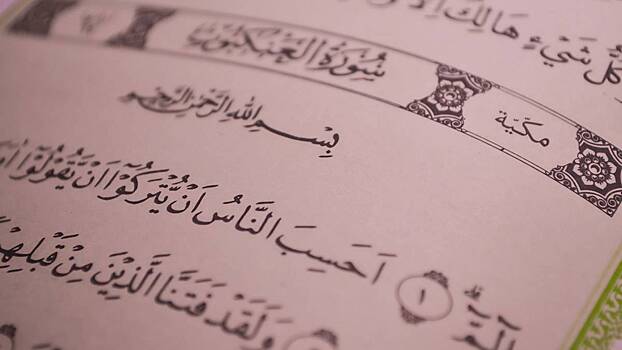 كُلُّ شَيْءٍ هَالِكٌ اِلَّا
مَكِّيَّة سُورَةُ الْعَنْكَبُوتِ
بِسْمِ اللّٰهِ الرَّحْمٰنِ الرَّحِيمِ
الٓمٓ ۚ ١ اَحَسِبَ النَّاسُ اَنْ يُتْرَكُٓوا اَنْ يَقُولُٓوا
وَلَقَدْ فَتَنَّا الَّذِينَ مِنْ قَبْلِهِمْ